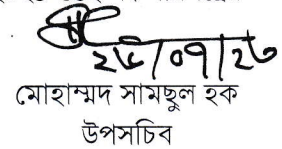 ২৮/০৭/২৩
মোহাম্মদ সামছুল হক
উপসচিব